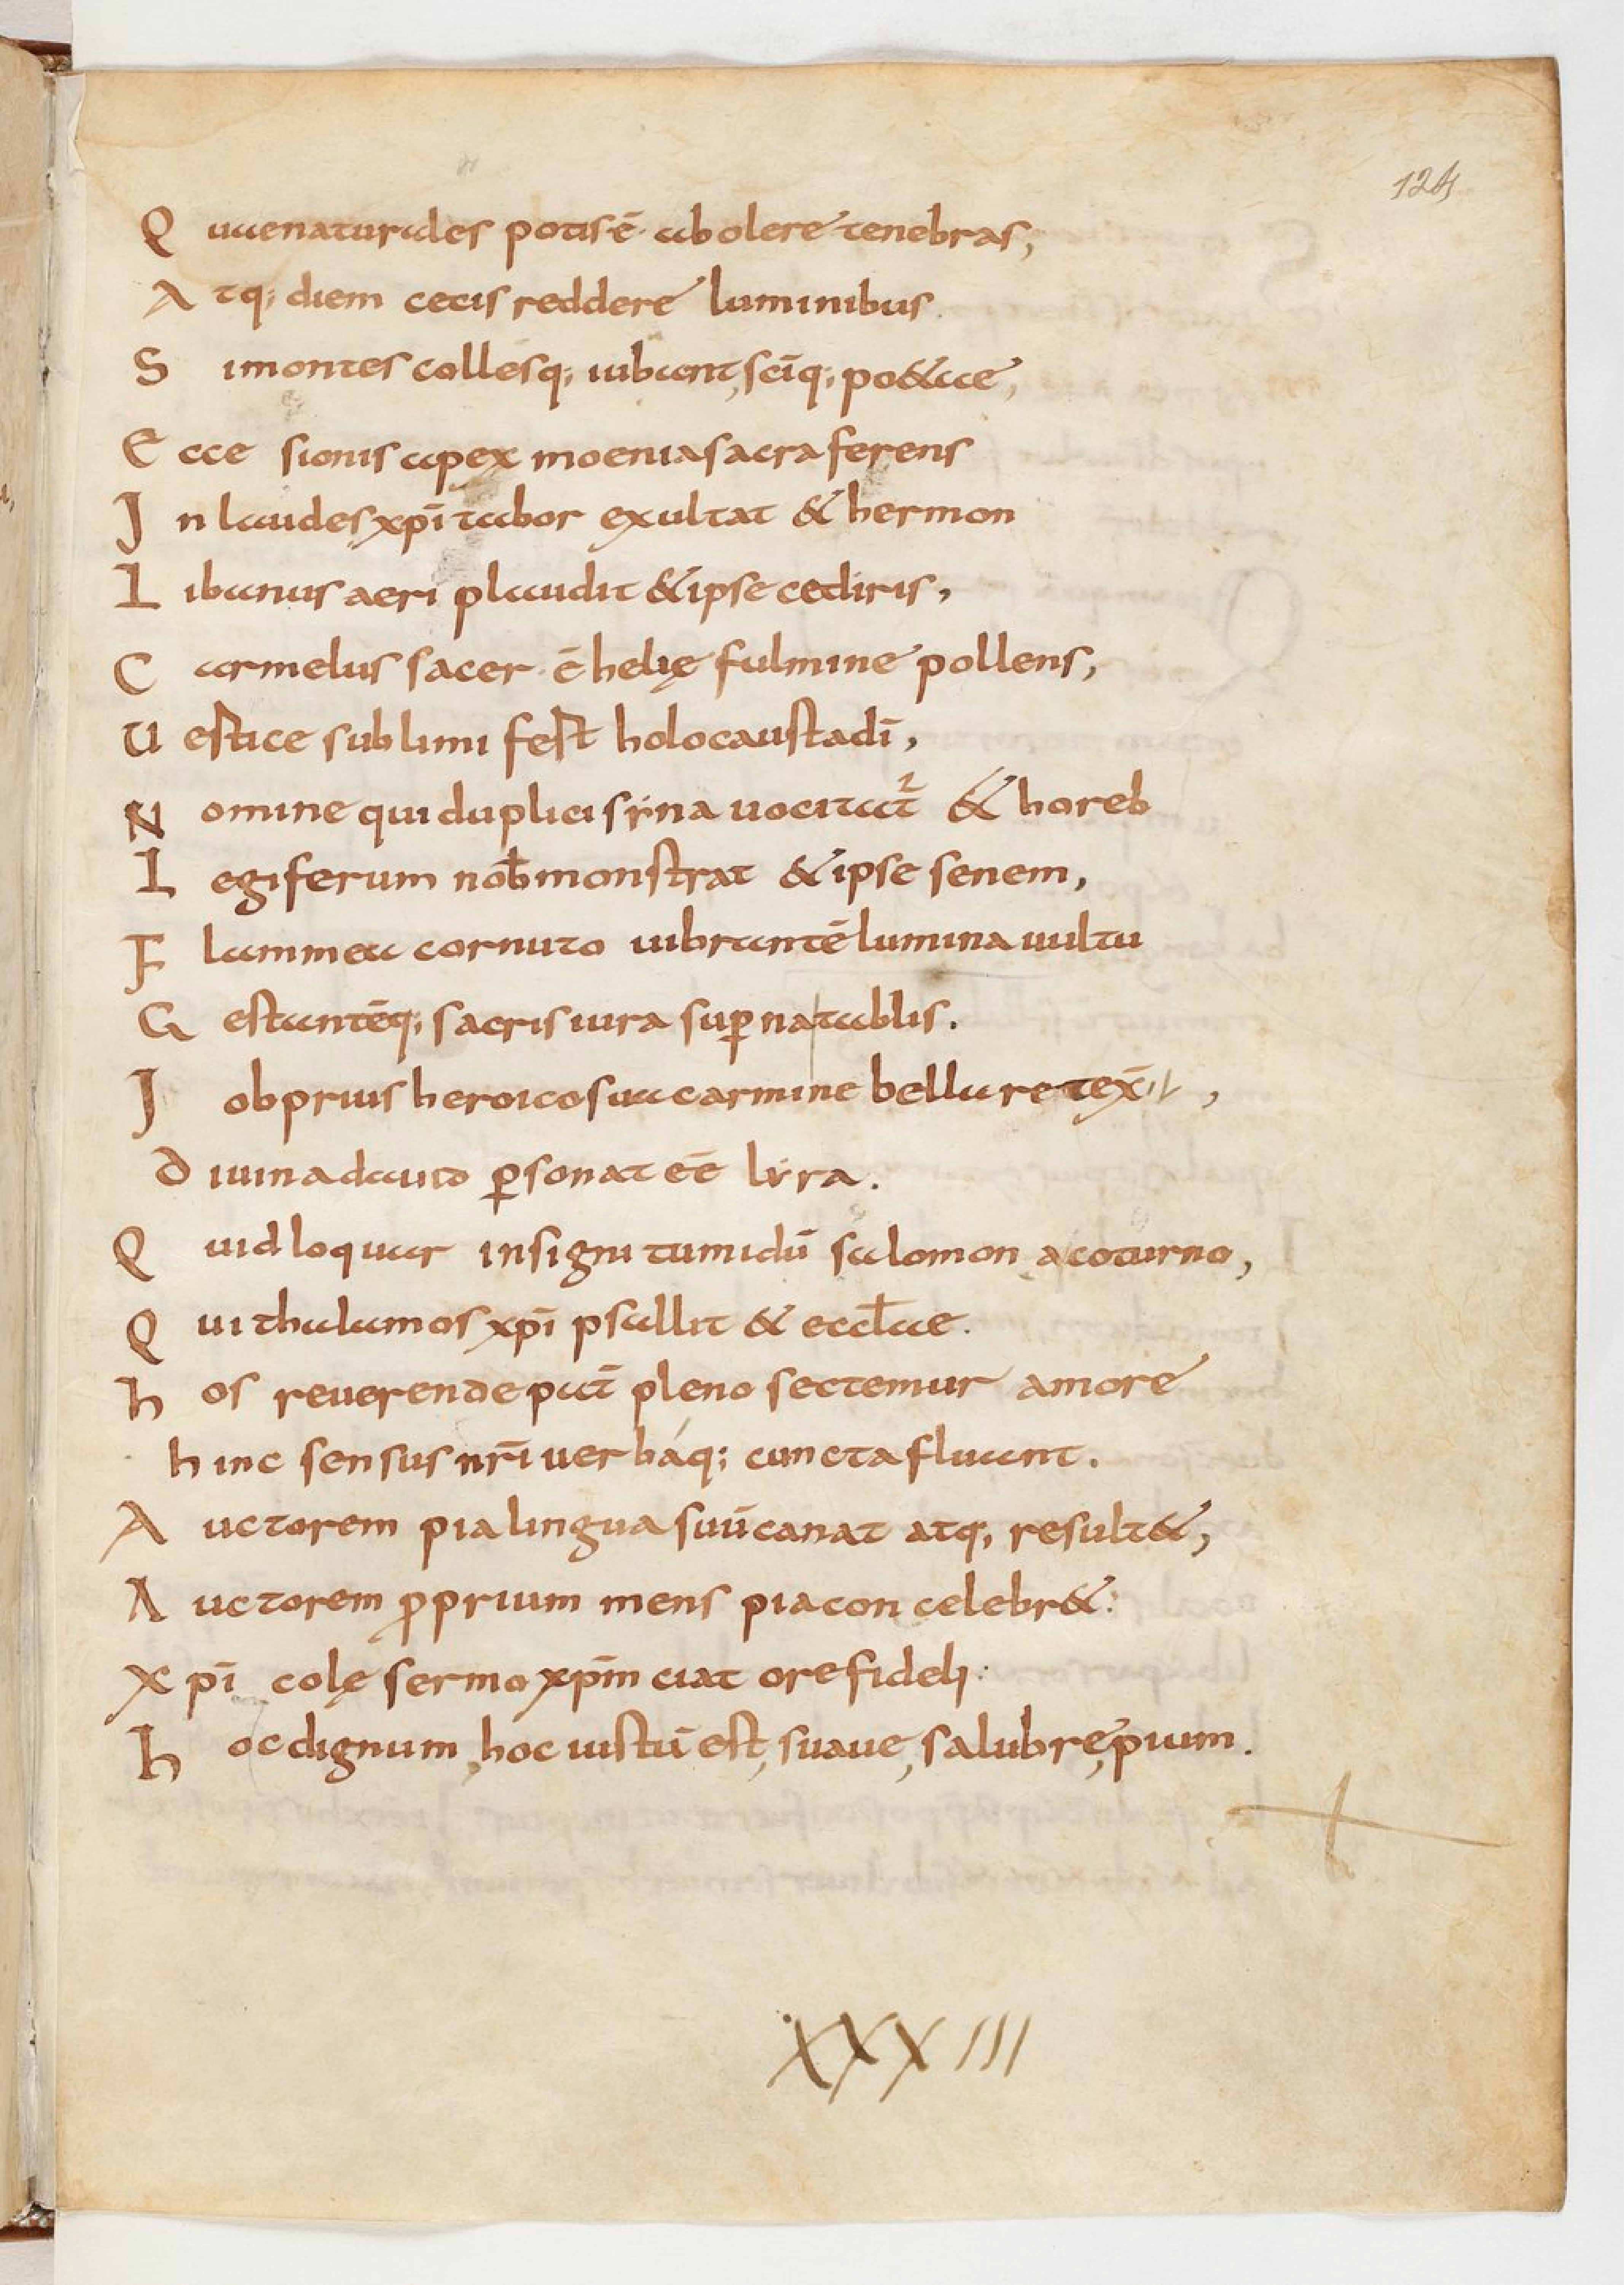 124
Quaenaturales potis ē abolere tenebras,
Atq; diem cecis reddere luminibus.
Si montes collesq; iubant, scīq; poetae,
Ecce sionis apex moenia sacra ferens
In laudes xpī tabor exultat & hermon
Libanus aeri plaudit & ipse cediris,
Carmelus sacer ē helię fulmine pollens,
Uestice sublimi fest holocausta dī,
Nomine qui duplici syna uocitat̄ & horeb
Legiferum nob̄ monstrat & ipse senem,
Flammea cornuto uibrantē lumina uultu
Gestantēq; sacris iura sup̱na tablis.
Iob prius heroico sua carmine bella retexit,
Diuina dauid p̱sonat eē lyra.
Quid loquar insigni tumidū salomon a coturno,
Qui thalamos xpī psallit & eccl̄ae.
hos reuerende pat̄ pleno sectemur amore
hinc sensus nr̄i uerbáq; cuncta fluant.
Auctorem pia lingua suū canat atq; resultet,
Auctorem p̱prium mens pia concelebret:
Xpī colę sermo xpm̄ ciat ore fideli:
hoc dignum, hoc iustū est, suaue, salubre, pium.
XXXIII